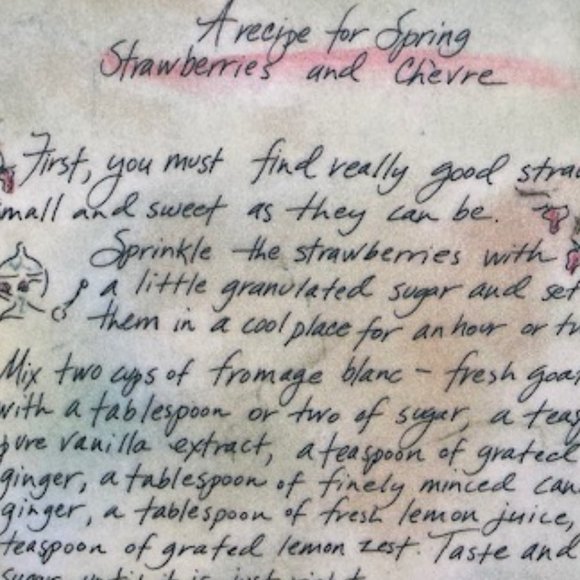 A recipe for Spring
Strawberries and Chèvre
First, you must find really good straw
small and sweet as they can be.
Sprinkle the strawberries with
a little granulated sugar and set
them in a cool place for an hour or tw
Mix two cups of fromage blanc - fresh goat
with a tablespoon or two of sugar, a teas
pure vanilla extract, a teaspoon of grated
ginger, a tablespoon of finely minced can
ginger, a tablespoon of fresh lemon juice,
teaspoon of grated lemon zest. Taste and
sugar until it is just right